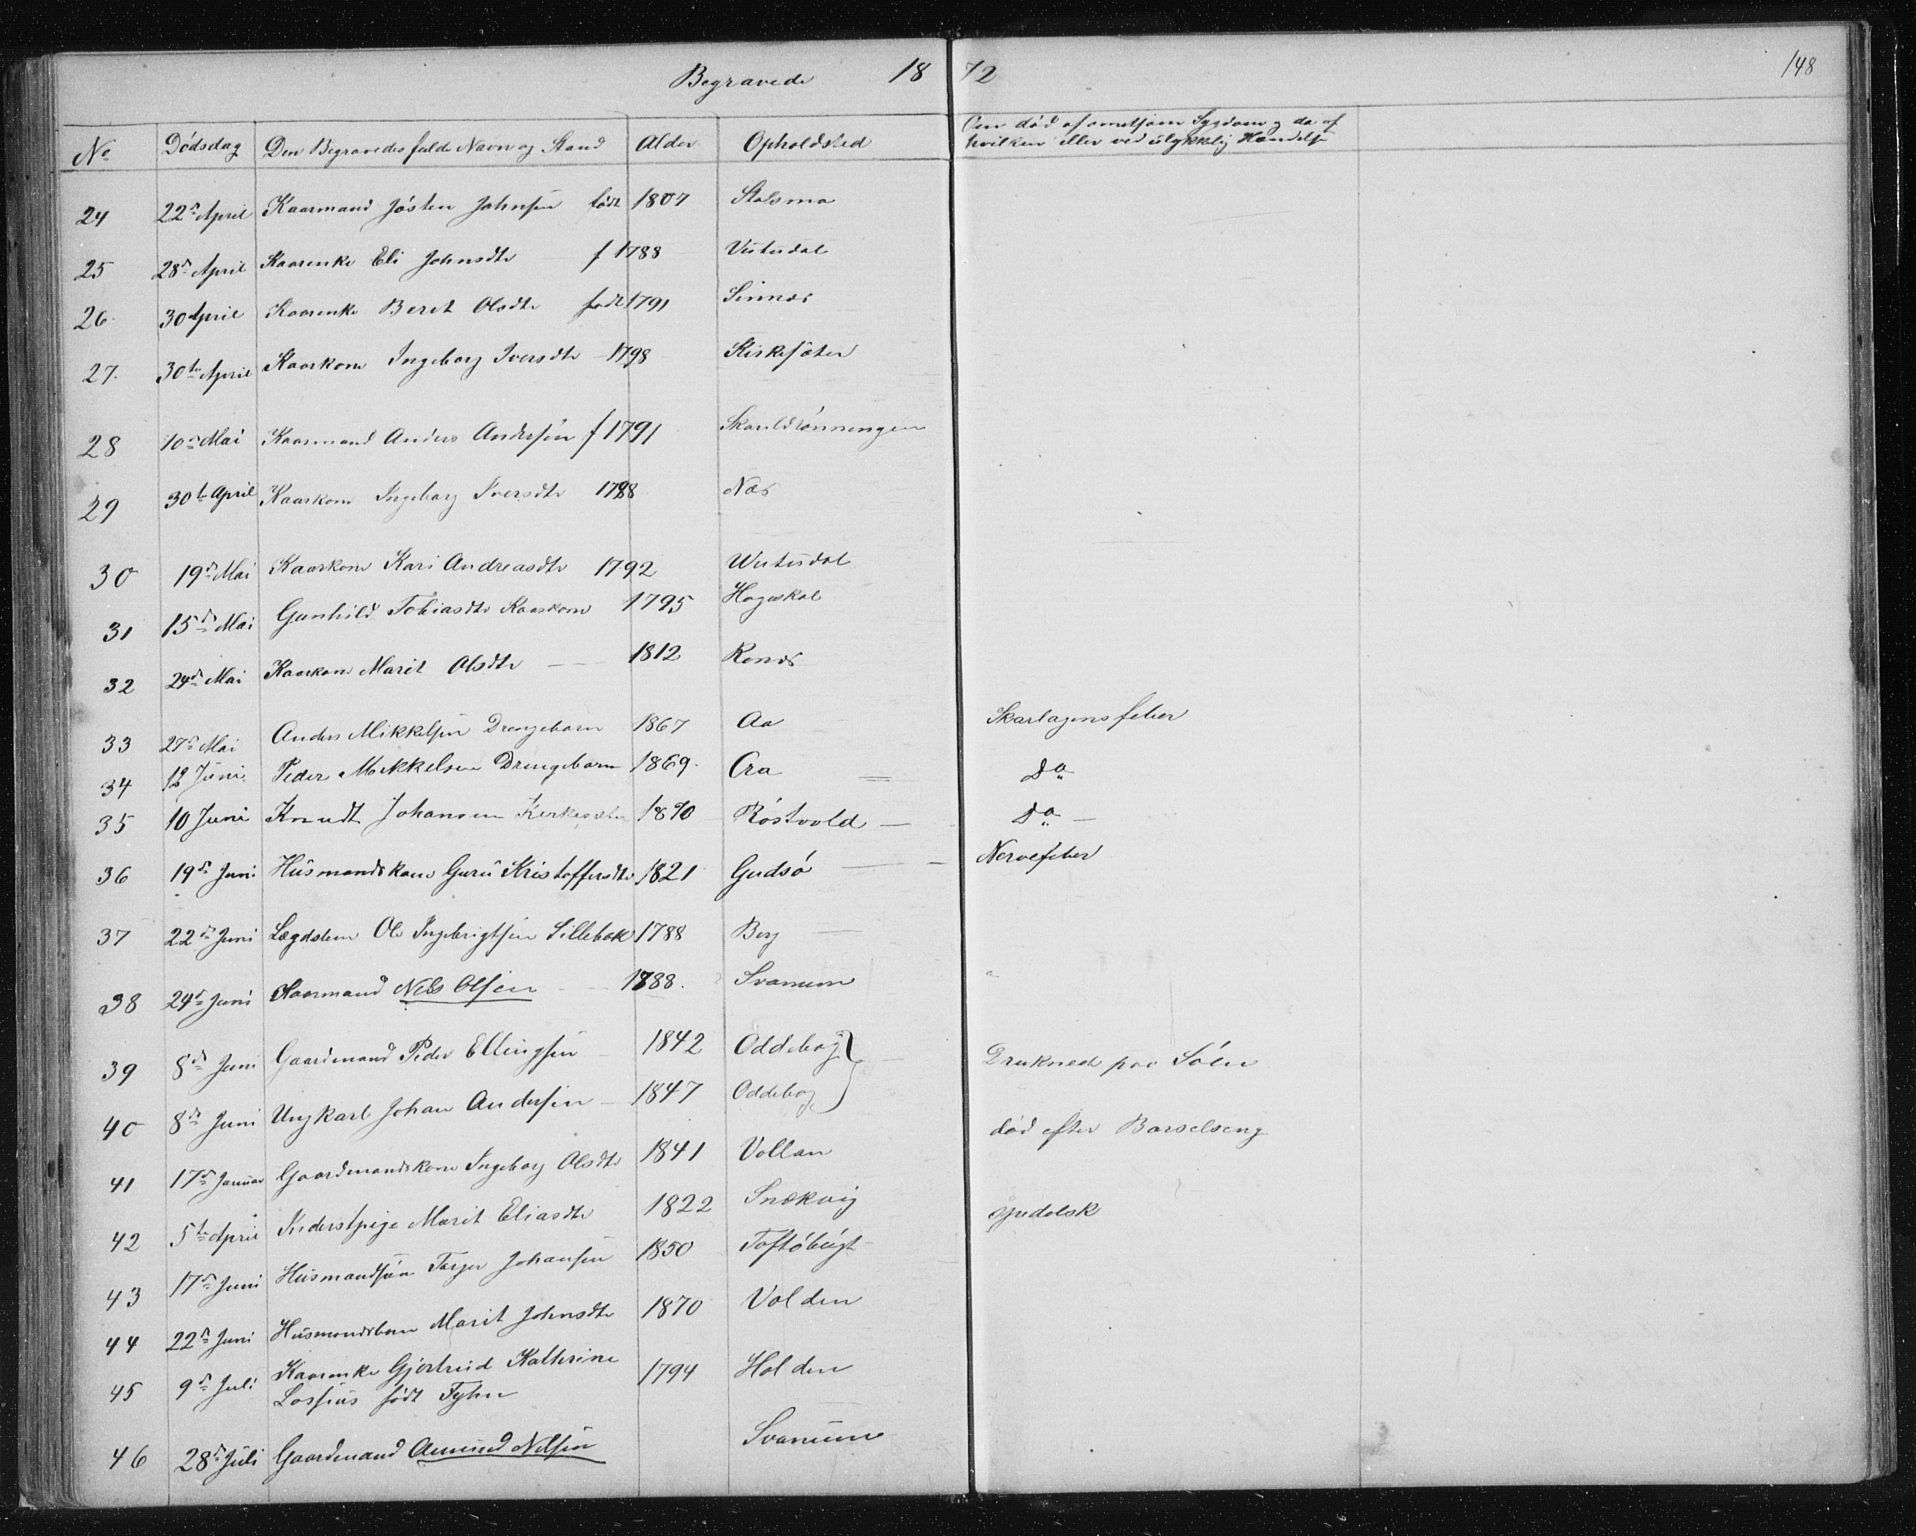 Begravede 1872 148
No Dødsdag Den Begravedes fulde Navn og Stand Alder Opholdsted Om død af smetsom Sygdom og da af
hvilken eller ved ulykkelig Hændelse
24 22d April Kaarmand Jøsten Johnsen født 1807 Stolsmo
25 28d April Kaarenke Eli Johnsdtr f 1788 Vestudal
26 30 April Kaarenke Beret Olsdtr født 1791 Sinnæs
27. 30te April Kaarkone Ingeborg Iversdtr 1798 Kirkesæter
28 10d Mai Kaarmand Anders Andersen f 1791 Skarildrønningen
29 30te April Kaarkone Ingeborg Iversdtr 1788 Næs
30 19d Mai Kaarkone Kari Andreasdtr 1792 Westudal
31 15d Mai Gunhild Tobiasdtr Kaarkone 1795 Hagaskal
32 24d Mai Kaarkone Marit Olsdtr - - - 1812 Ronæs
33 27d Mai Anders Mikkelsen Drengebarn 1867 Aa Skarlagensfeber
34 12 Juni Peder Mikkelsen Drengebarn 1869. Aa = Do
35 10 Juni Knudt Johansen Kirkesæter 1870 Røstvold — Do —
36 19d Juni Husmandskone Guru Kristoffersdtr 1821 Gudsø — Nervefeber
37 22d Juni Lægdslem Ole Ingebrigtsen Sillebak 1788 Berg —
38 24d Juni Kaarmand Nels Olsen 1788. Svanum "
39 8d Juni Gaardmand Peder Ellingsen 1842 Oddebog } Druknede paa Søen
40 8d Juni Ungkarl Johan Andersen 1847 Oddebog
41 17d Januar Gaardmandskone Ingeborg Olsdtr 1841 Vollan død efter Barselseng
42 5te April Inderstpige Marit Eliasdtr 1822 Snækvig spedalsk
43 17d Juni Husmandsøn Torger Johansen 1850 Toftøbugt
44 22d Juni Husmandsbarn Marit Johnsdtr 1870 Volden
45 9d Juli Kaarenke Gjertrud Kathrine 1794 Holden
Lossius født Tyhn
46 28d Juli Gaardmand Amund Nelsen Svanum